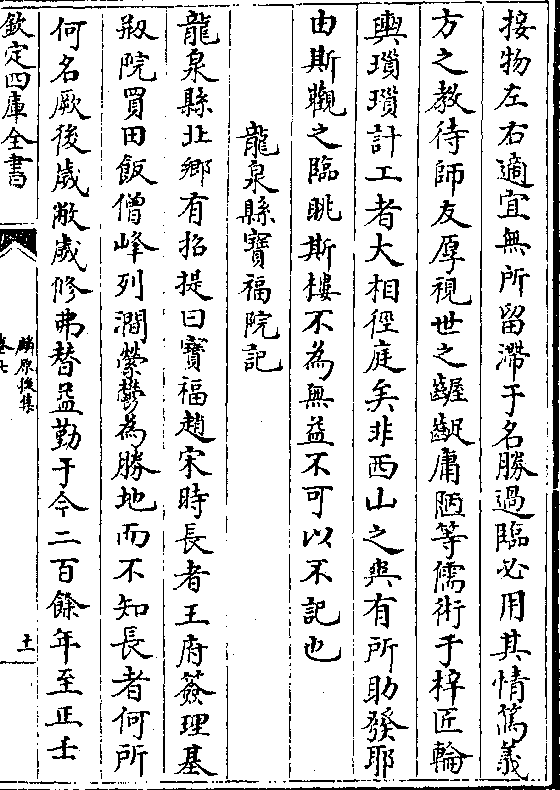 接物左右適宜無所留滯于名勝過臨必用其情篤義
方之教待師友厚視世之齷齪庸陋等儒術于梓匠輪
輿瑣瑣計工者大相徑庭矣非西山之爽有所助發耶
由斯觀之臨眺斯樓不為無益不可以不記也
龍泉縣寶福院記
龍泉縣北鄉有招提曰寶福趙宋時長者王府簽理基
剏院買田飯僧峰列澗縈鬱為勝地而不知長者何所
何名厥後歲敝歲修弗替益勤于今二百餘年至正壬
欽定四庫全書
麟原後集
卷七
十一